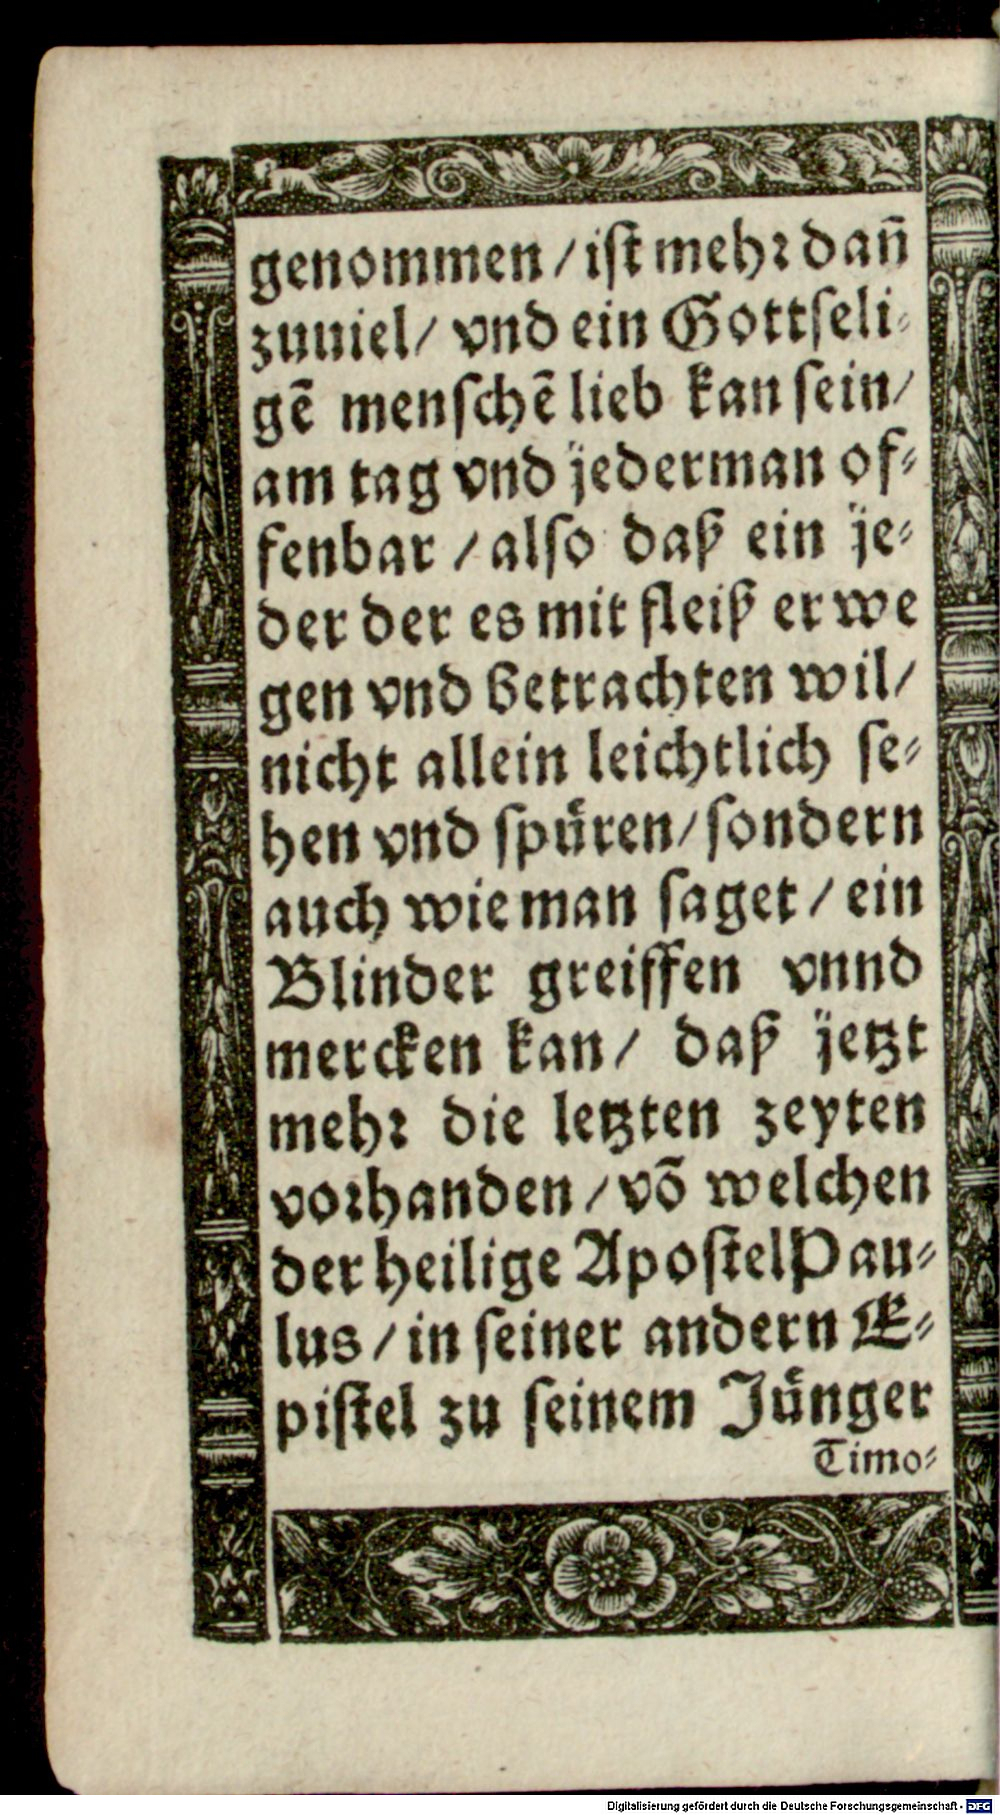 genommen / ist mehr dañ
zuuiel / vnd ein Gottseli⸗
gẽ menschẽ lieb kan sein /
am tag vnd jederman of⸗
fenbar / also daß ein je⸗
der der es mit fleiß erwe
gen vnd betrachten wil /
nicht allein leichtlich se⸗
hen vnd spüren / sondern
auch wie man saget / ein
Blinder greiffen vnnd
mercken kan / daß jetzt
mehr die letzten zeyten
vorhanden / võ welchen
der heilige Apostel Pau⸗
lus / in seiner andern E⸗
pistel zu seinem Jünger
Timo⸗
Digitalisierung gefördert durch die Deutsche Forschungsgemeinschaft - DFG